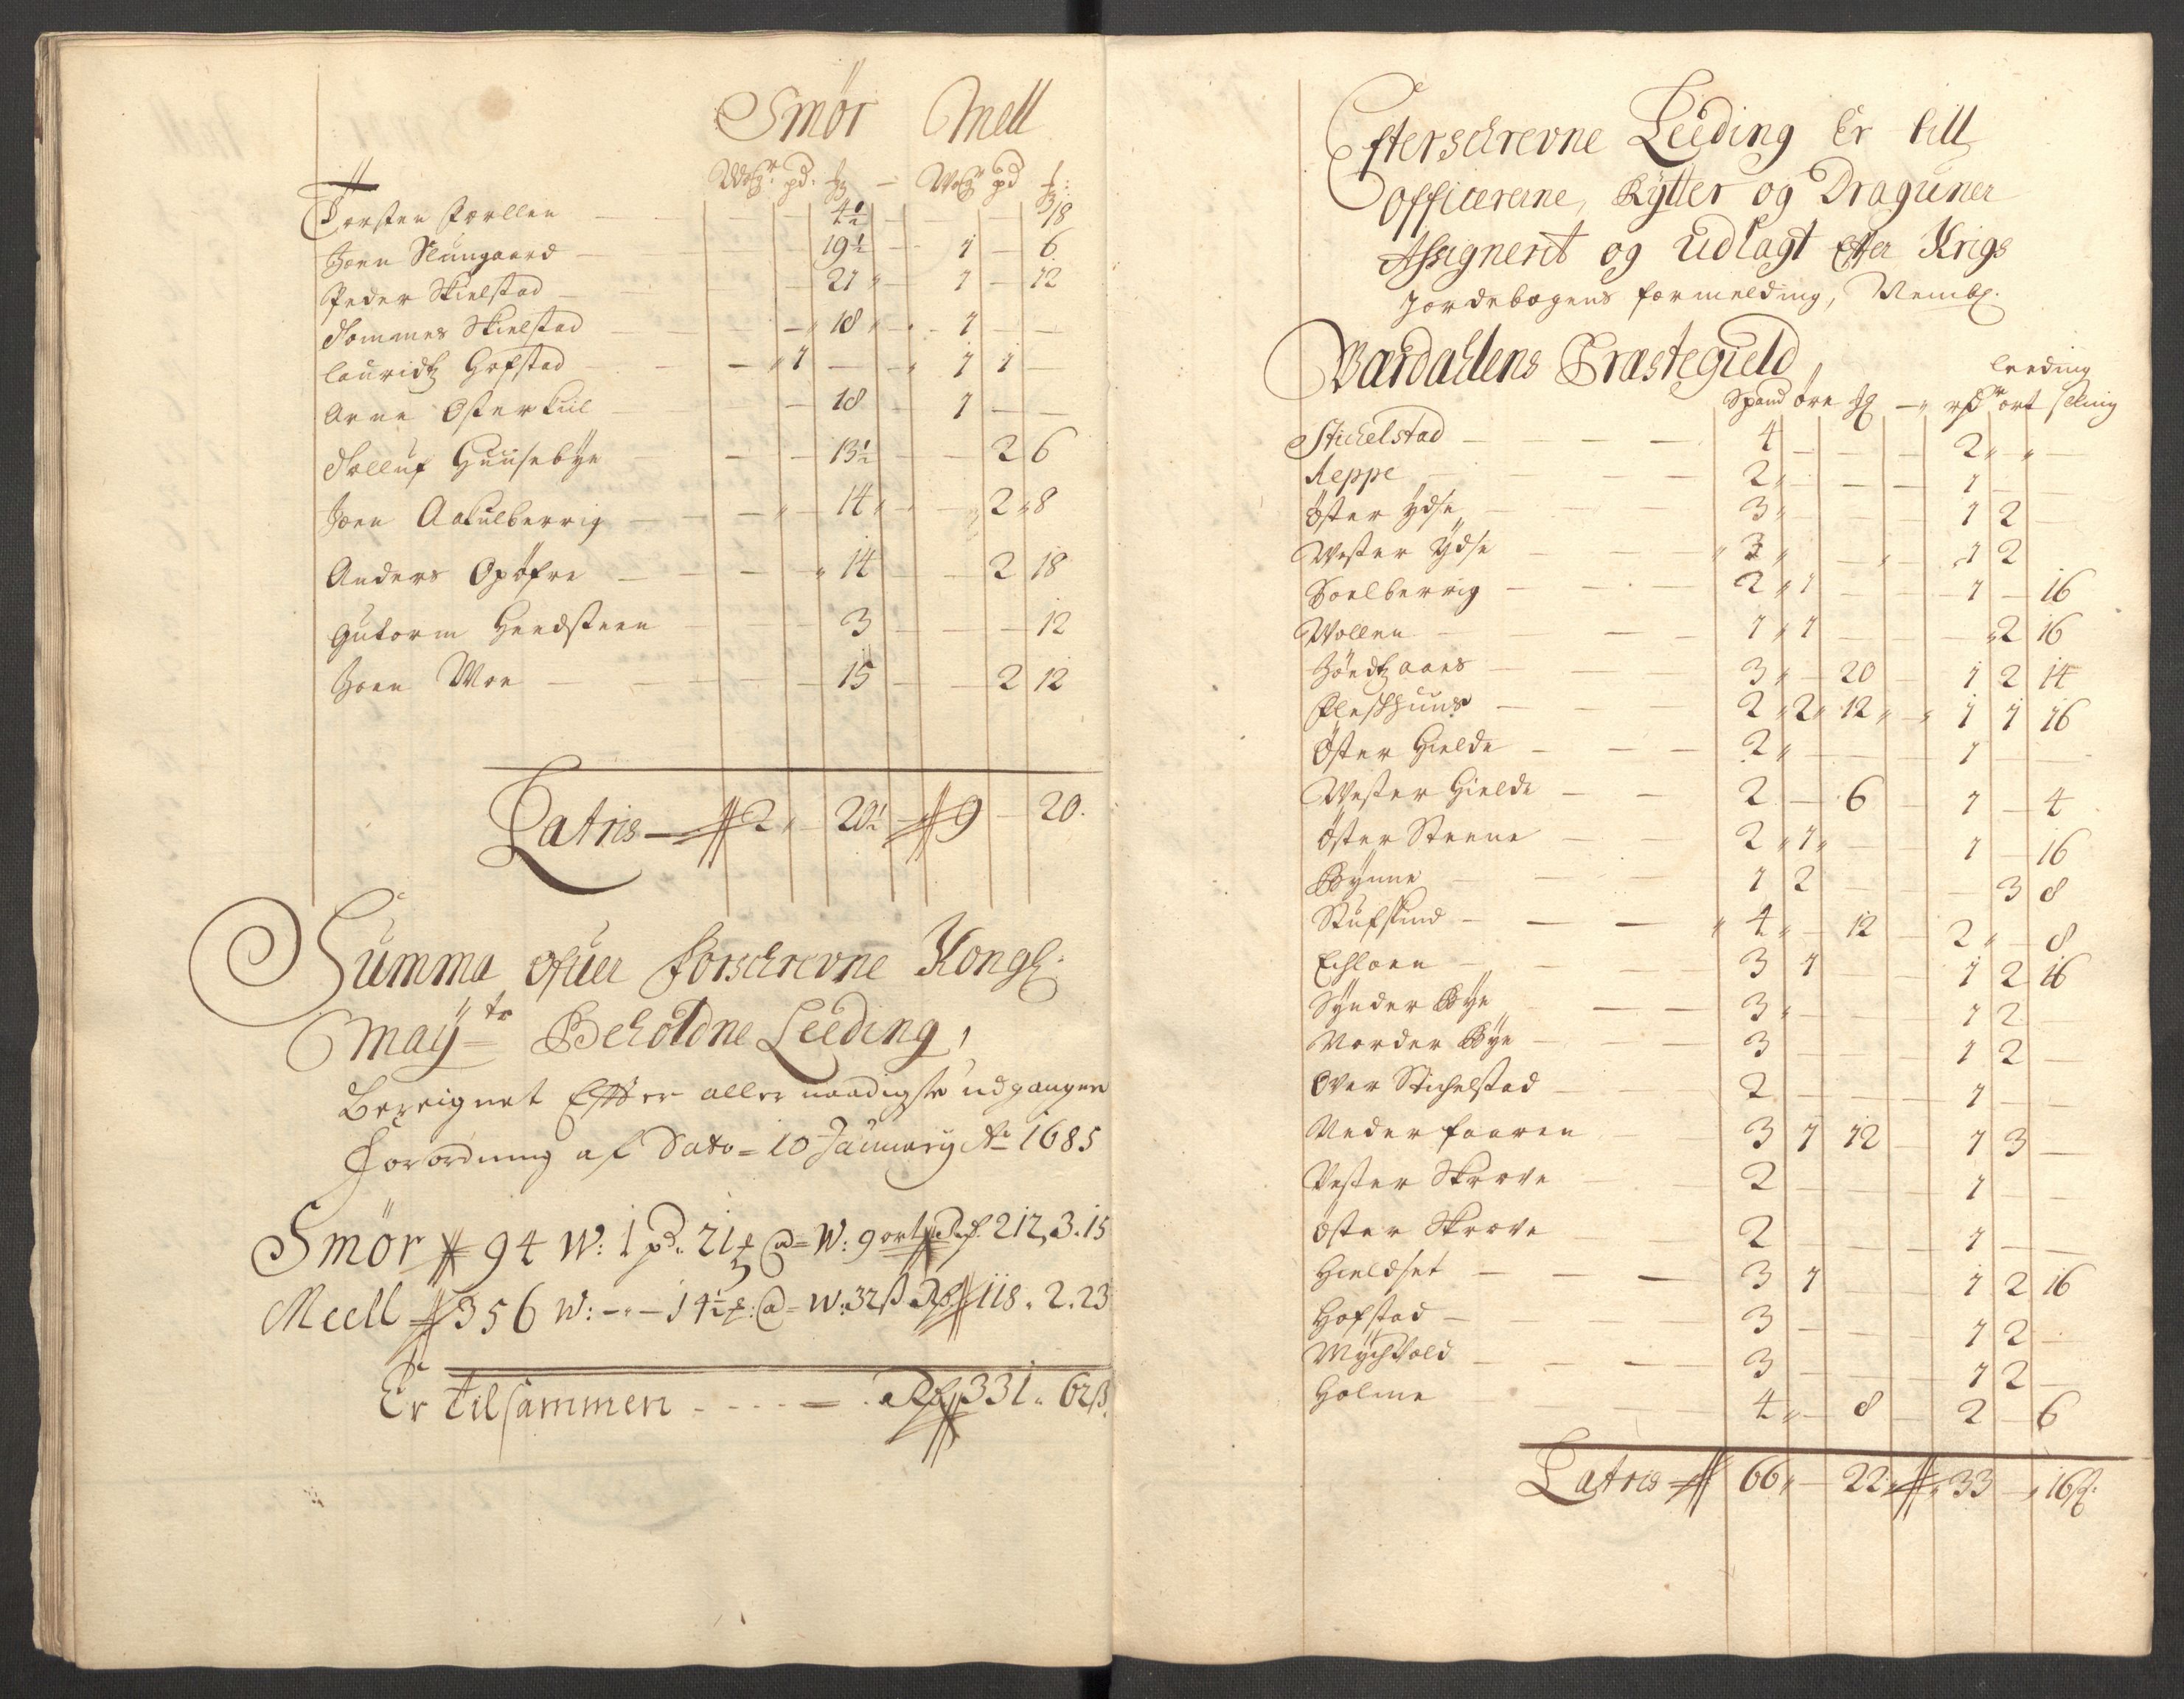 Smör Mell
Wog pd: — Wog pd
Torsten — 4½ — 18
Joen Slungaard — 19½ — 1 — 6
Peder Skielstad — 21 — 1 — 12
Tommes Skielstad — 18 — 1 — —
Lauridtz Hofstad — 1 — — 1 1 —
Arne Østerkiil — 18 — 1 — —
Tolluf Huusebye — 13½ — 2 6
Joen Aakulberrig — 14 — 2 8
Anders Opöfre — 14 — 2 18
Gutorm Heedsteen — 3 — 12
Joen Moe — 15 — 2 12
Latris — 2 — 20½ — 9 — 20.
Summa ofuer forschrevne Kongl:
May tz Beholdne Leeding,
Bereignet Effter aller naadigste udgangne
Forordning af Dato = 10 January Ao 1685
Smör 94 W: 1 pd. 21 @ = W: 9 ort Rd. 212, 3. 15
Meell 356 W: - - 14½ : @ = W: 32 ß Rd 118. 2. 23
Er tilsammen - - - - Rd 331. 62 ß.
Efterschrevne Leeding Er till
officererne, Rytter og Draguner
Assignerit og udlagt Efter Krigs
Jordebogens formelding, Nembl.
Værdahlens Præstegield
Leeding
Spand öre — rd ort skling
Stichelstad — 4 — 2 —
Reppe — 2 — 1 — —
Öster ydse — 3 — 1 2 —
Wester Ydse — 3 — 1 2
Soelberrig — 2 1 — 1 — 16
Wollen — 1 1 — 2 16
Jöedtzaaes — 3 — 20 — 1 2 14
Fleskhuus — 2 2 12 — 1 1 16
Öster Hielde — 2 — 1 — —
Wester Hielde — 2 — 6 — 1 — 4
Öster Steene — 2 1 — 1 — 16
Bynne — 1 2 — 3 8
Stufskind — 4 — 12 — 2 — 8
Echloen — 3 1 — 1 2 16
Synder Bye — 3 — 1 2
Norder Bye — 3 — 1 2 —
Over Stichelstad — 2 — 1 — —
Neder faaren — 3 1 12 — 1 3 —
Vester Skrove — 2 — 1 — —
Öster Skrove — 2 — 1 — —
Hieldset — 3 1 — 1 2 16
Hofstad — 3 — 1 2 —
Mÿchvold — 3 — 1 2 —
Holme — 4 — 8 — 2 — 6
Latris — 66 — 22 — 33 — 16 ß.